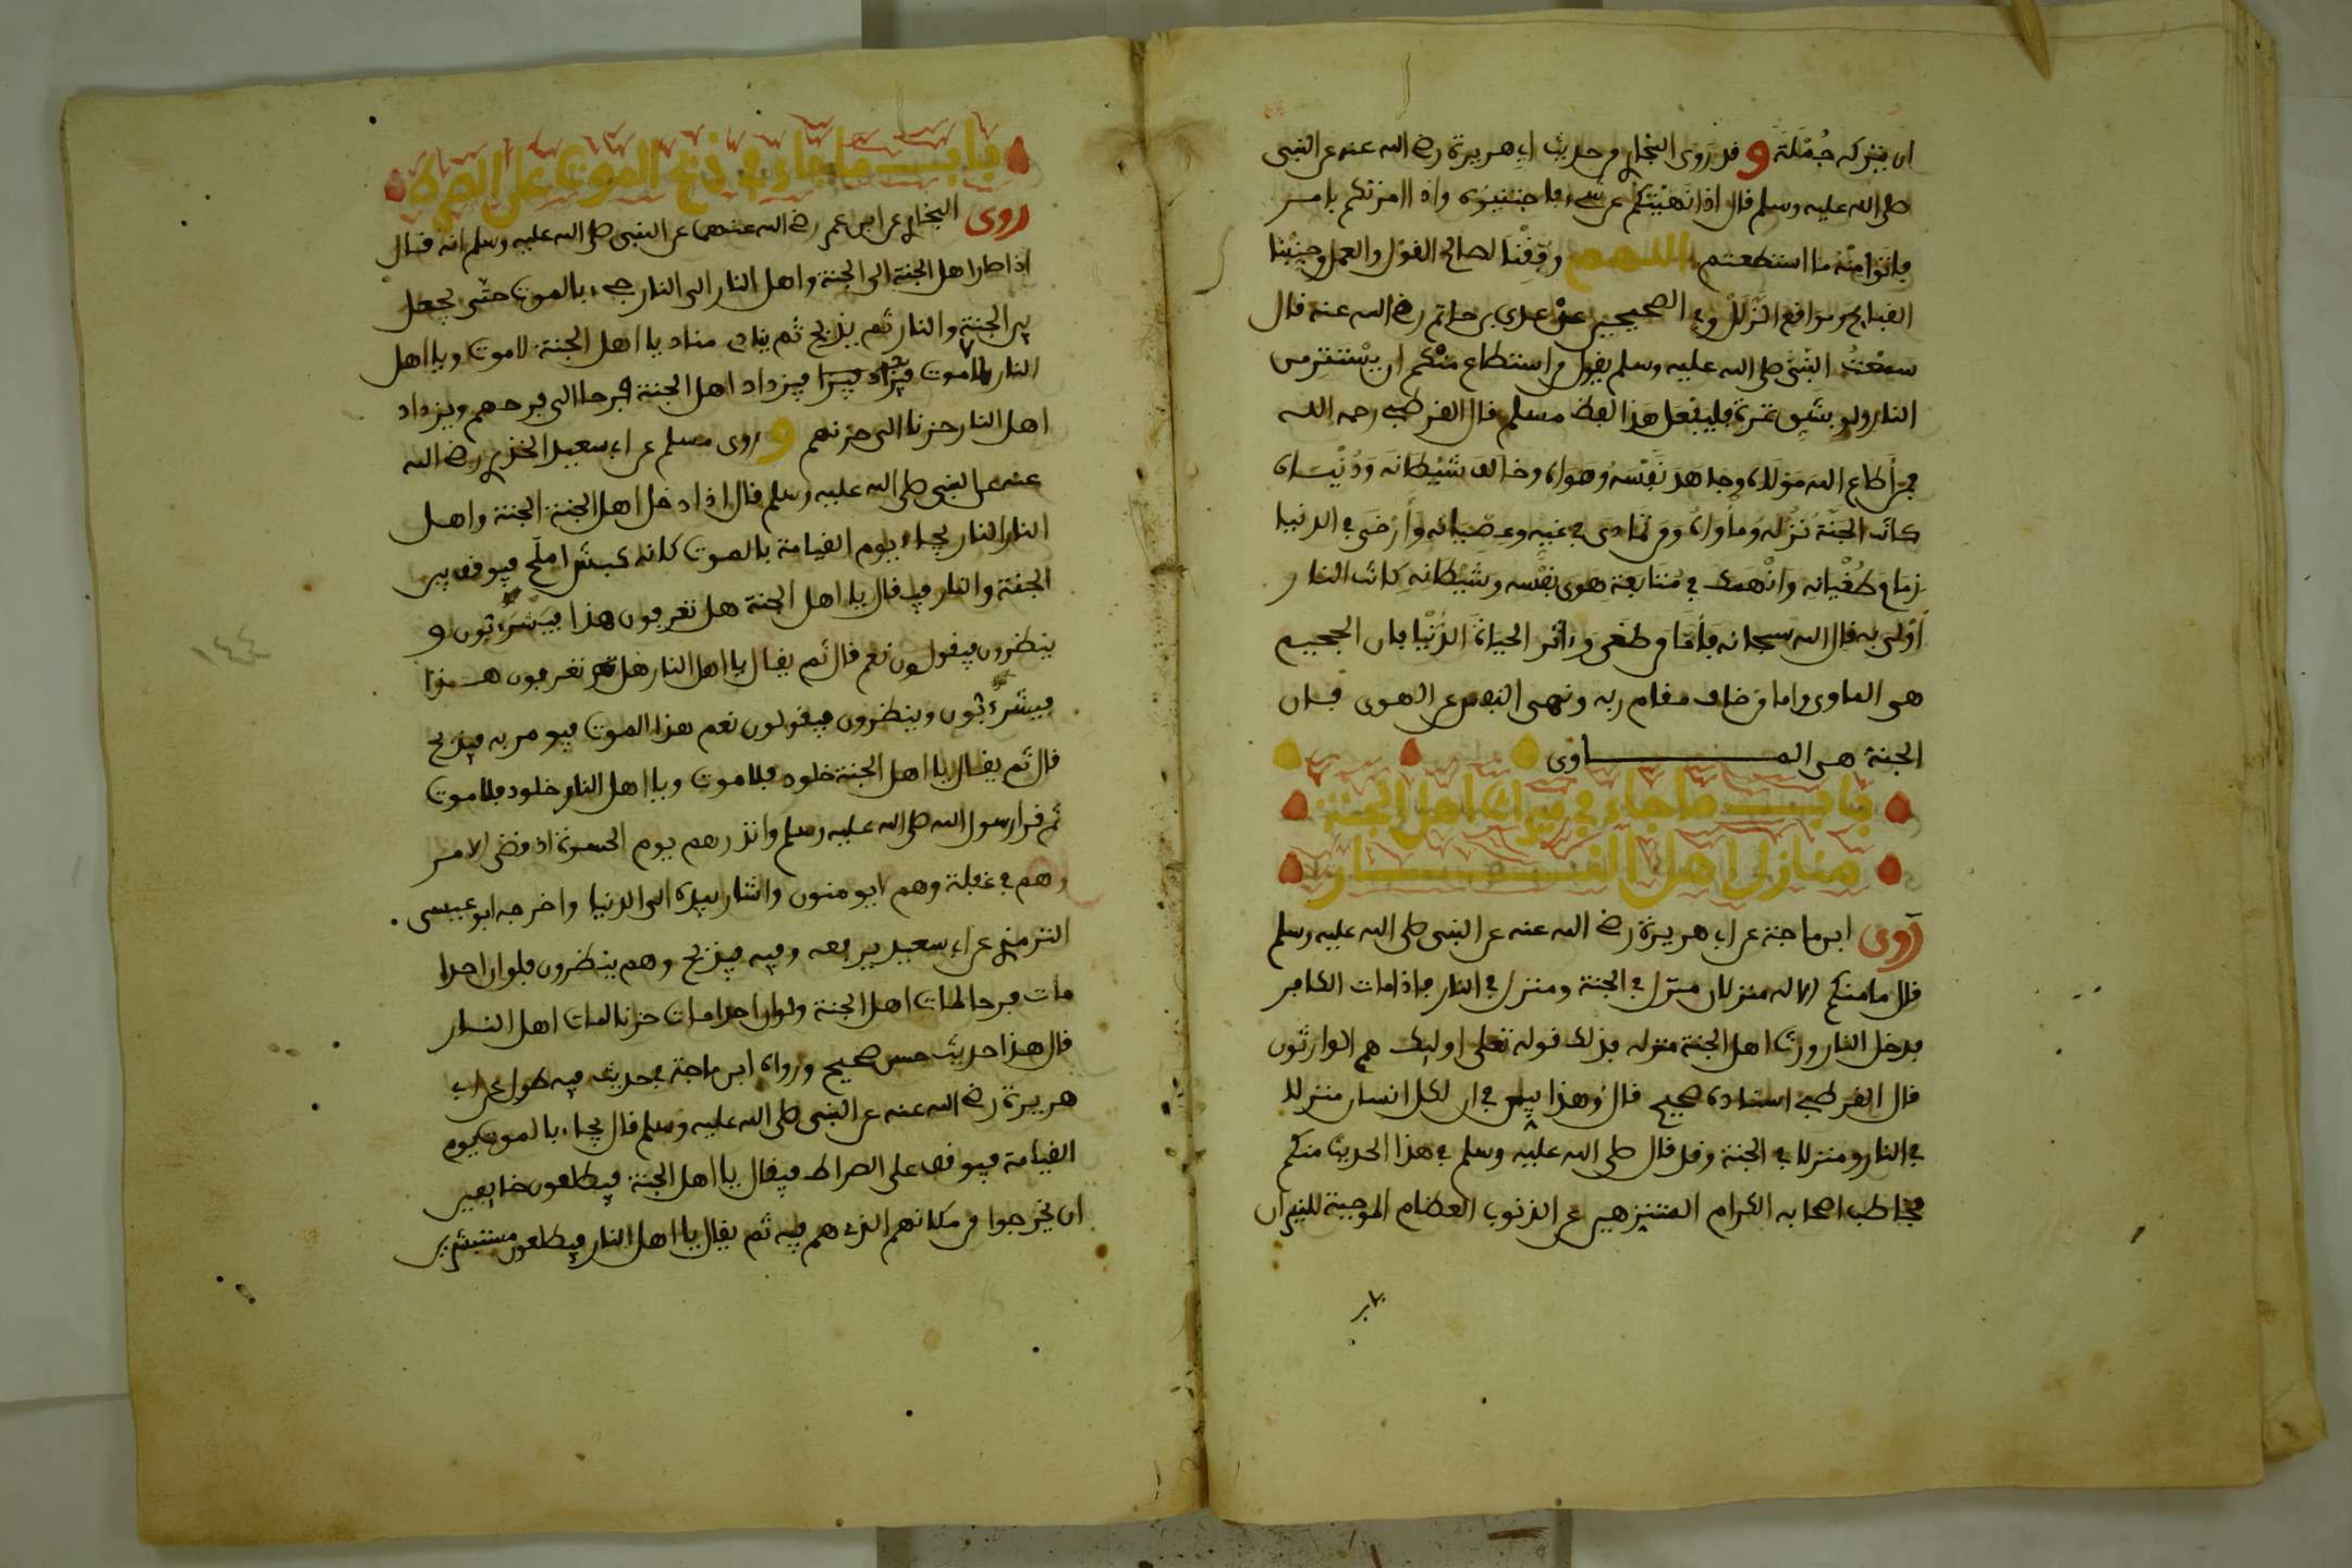 ان يتركه جُمْلَةً وقد روى البخاري من حديث ابي هريرة رضي الله عنه عن النبي
صلى الله عليه وسلم قال اذا نَهَيْتُكم عن شيء فاجتنبوه واذا امرتكم بامر
فاتوا منه ما استطعتم اللهم وَفِّقْنَا لصالح القول والعمل وجنبنا
القبايح ومواقع الزلل وفي الصحيحين عن عدي بن حاتم رضي الله عنه قال
سمعت النبي صلى الله عليه وسلم يقول من استطاع منكم ان يستتر من
النار ولو بشق تمرة فليفعل هذا لفظ مسلم قال القرطبي رحمه الله
فمن أطاع الله مولاه وجاهد نفسه وهواه وخالف شيطانه ودنياه
كانت الجنة نزله ومأواه ومن تمادى في غيه وعصيانه وأرخى في الدنيا
زمام طغيانه وانهمك في متابعة هوى نفسه وشيطانه كانت النار
أولى به قال الله سبحانه فأما من طغى وءاثر الحياة الدنيا فان الجحيم
هي الماوى واما من خاف مقام ربه ونهى النفس عن الهوى فان
الجنة هي الماوى
باب ما جاء في ميراث اهل الجنة
منازل اهل النار
روى ابن ماجة عن ابي هريرة رضي الله عنه عن النبي صلى الله عليه وسلم
قال ما منكم الا له منزلان منزل في الجنة ومنزل في النار فاذا مات الكافر
فدخل النار ورث اهل الجنة منزله فذلك قوله تعلى اوليك هم الوارثون
قال القرطبي اسناده صحيح قال وهذا بين في ان لكل انسان منزلا
في النار ومنزلا في الجنة وقد قال صلى الله عليه وسلم في هذا الحديث منكم
فخاطب اصحابه الكرام المتنزهين عن الذنوب العظام الموجبة للنيران
باب ما جاء في ذبح الموت على الصراط
روى البخاري عن ابن عمر رضي الله عنهما عن النبي صلى الله عليه وسلم انه قال
اذا صار اهل الجنة الى الجنة واهل النار الى النار جيء بالموت حتى يجعل
بين الجنة والنار ثم يذبح ثم ينادي مناد يا اهل الجنة لا موت ويا اهل
النار لا موت فيزداد اهل الجنة فرحا الى فرحهم ويزداد
اهل النار حزنا الى حزنهم وروى مسلم عن ابي سعيد الخذري رضي الله
عنه عن النبي صلى الله عليه وسلم قال اذا ادخل اهل الجنة الجنة واهل
النار النار يجاء يوم القيامة بالموت كانه كبش املح فيوقف بين
الجنة والنار فيقال يا اهل الجنة هل تعرفون هذا فيشرءبون و
ينظرون فيقولون نعم قال ثم يقال يا اهل النار هل تعرفون هذا
فيشرءبون وينظرون فيقولون نعم هذا الموت فيومر به فيذبح
قال ثم يقال يا اهل الجنة خلود فلا موت ويا اهل النار خلود فلا موت
ثم قرا رسول الله صلى الله عليه وسلم وانذرهم يوم الحسرة اذ قضي الامر
وهم في غفلة وهم لا يومنون واشار بيده الى الدنيا واخرجه ابو عيسى
الترمذي عن ابي سعيد يرفعه وفيه فيذبح وهم ينظرون فلو ان احدا
مات فرحا لمات اهل الجنة ولو ان احدا مات حزنا لمات اهل النار
قال هذا حديث حسن صحيح ورواه ابن ماجة في حديث فيه طول عن ابي
هريرة رضي الله عنه عن النبي صلى الله عليه وسلم قال يجاء بالموت يوم
القيامة فيوقف على الصراط فيقال يا اهل الجنة فيطلعون خايفين
ان يخرجوا من مكانهم الذي هم فيه ثم يقال يا اهل النار فيطلعون مستبشرين
١٤٤